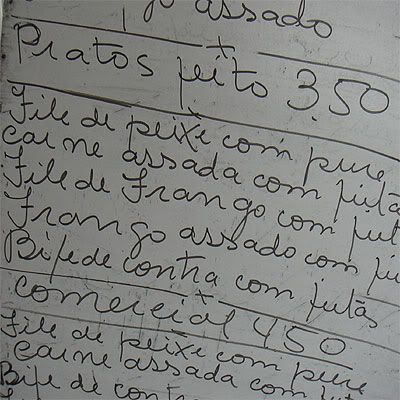 go assado
Pratos feito 3,50
File de peixe com pure
carne assada com fritas
File de Frango com frit
Frango assado com fri
Bife de contra com fritas
comercial 4,50
File de peixe com pure
carne assada com frit
Bife de contra